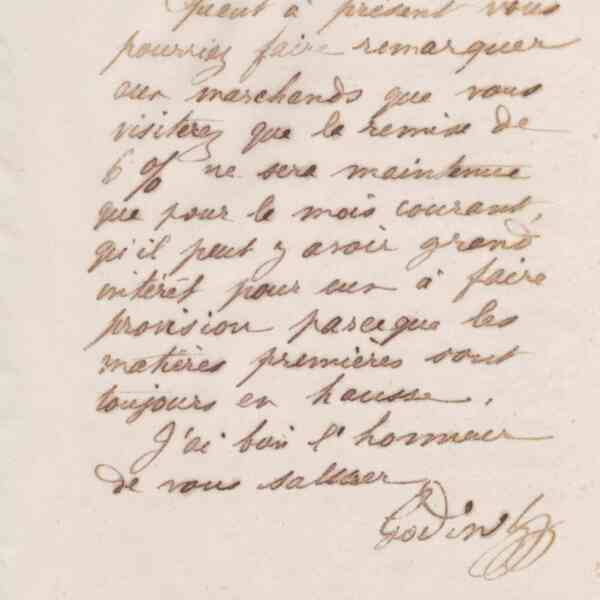 Quant à présent vous
pourriez faire remarquer
aux marchands que vous
visiterez que la remise de
6 % ne sera maintenue
que pour le mois courant,
qu'il peut y avoir grand
intérêt pour eux à faire
provision parceque les
matières premières sont
toujours en hausse.
J'ai bien l'honneur
de vous saluer
Godin